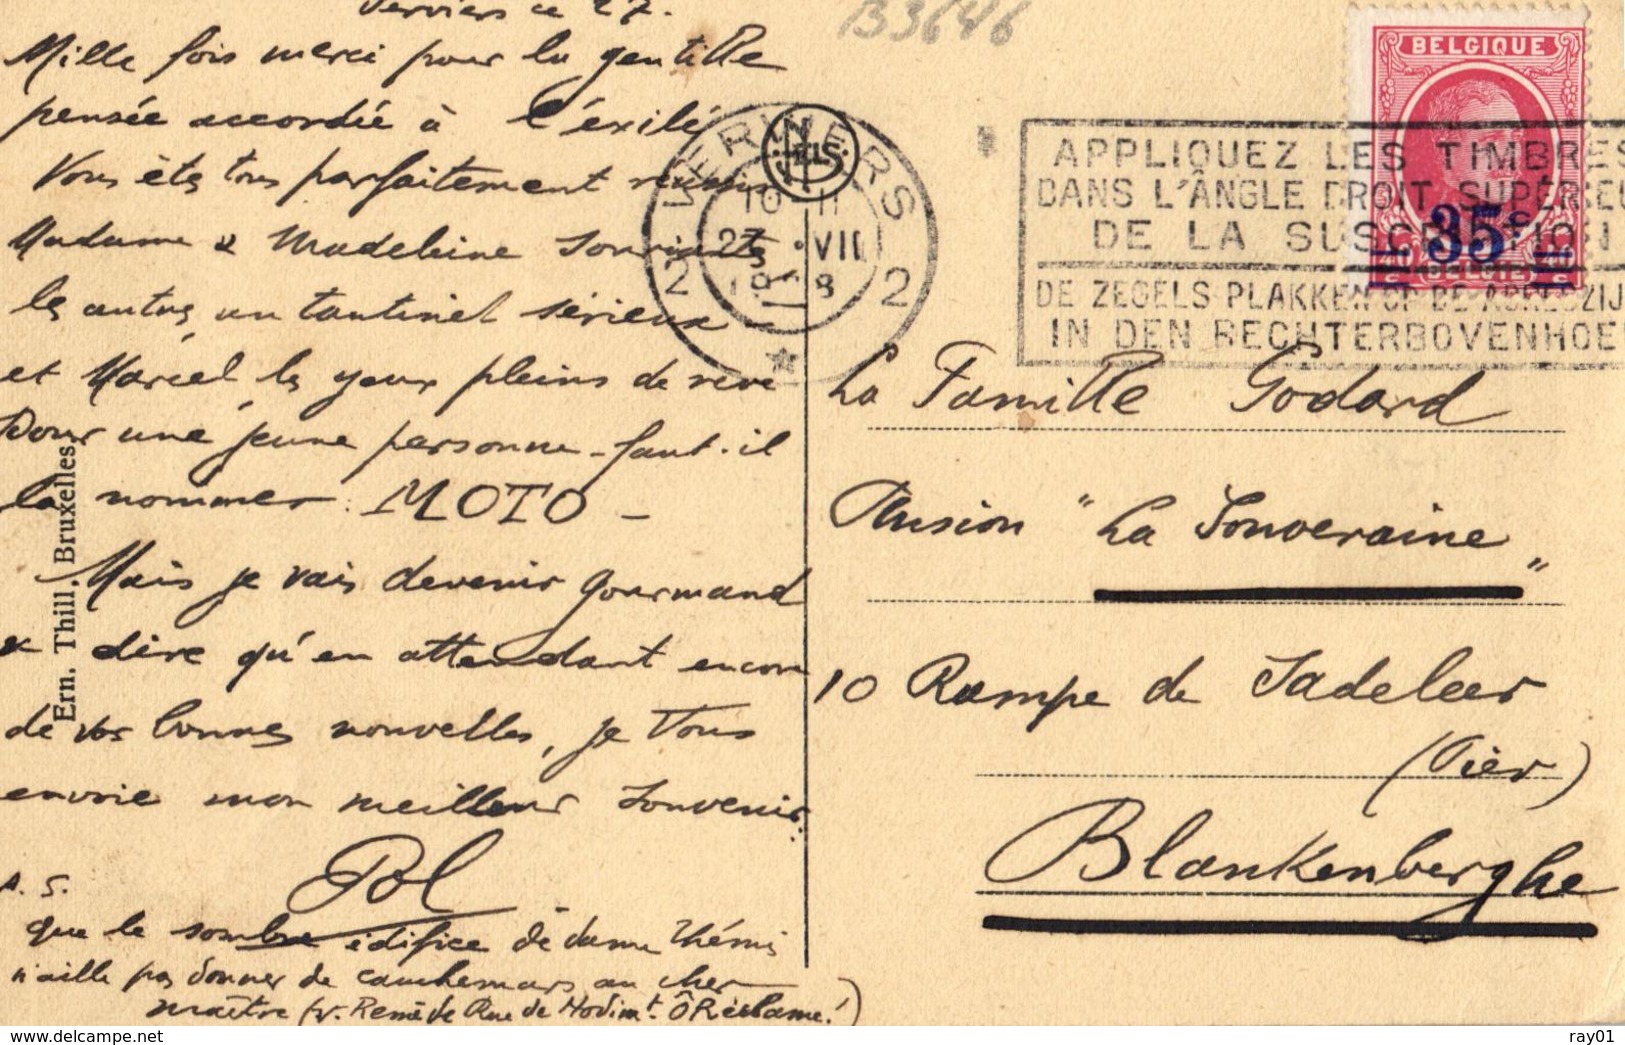 Verviers ce 27.
Mille fois merci pour la gentille
pensée accordée à l'éxilé
Vous êtes tous parfaitement réussis
Madame & Madeleine souriantes
les autres un tantinet sérieux –
et Marcel les yeux pleins de rêve
Pour une jeune personne - faut-il
la nommer : MOTO –
Mais je vais devenir gourmand
& dire qu'en attendant encore
de vos bonnes nouvelles, je vous
envoie mon meilleur souvenir.
Pol
P.S.
que le sombre édifice de dame Thémis
n'aille pas donner de cauchemars au cher
maître (v. Remède Rue de Hodimt. Ô Réclame!)
Ern. Thill, Bruxelles
B3646
NELS
VERVIERS
10-11
27 VII
1928
2 2
BELGIQUE
35c
BELGIË
APPLIQUEZ LES TIMBRES
DANS L'ÂNGLE DROIT SUPÉRIEU
DE LA SUSCRIPTION
DE ZEGELS PLAKKEN OP DE ADRESZIJ
IN DEN RECHTERBOVENHOE
La Famille Godard
Pension "La Souveraine"
10 Rampe de Sadeleer
(Pier)
Blankenberghe
ray01